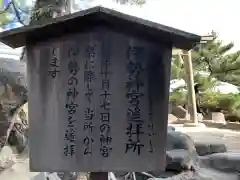 伊勢の神宮遥拝所
十月十七日の神宮
祭に際して当所から
伊勢の神宮を遥拝
します